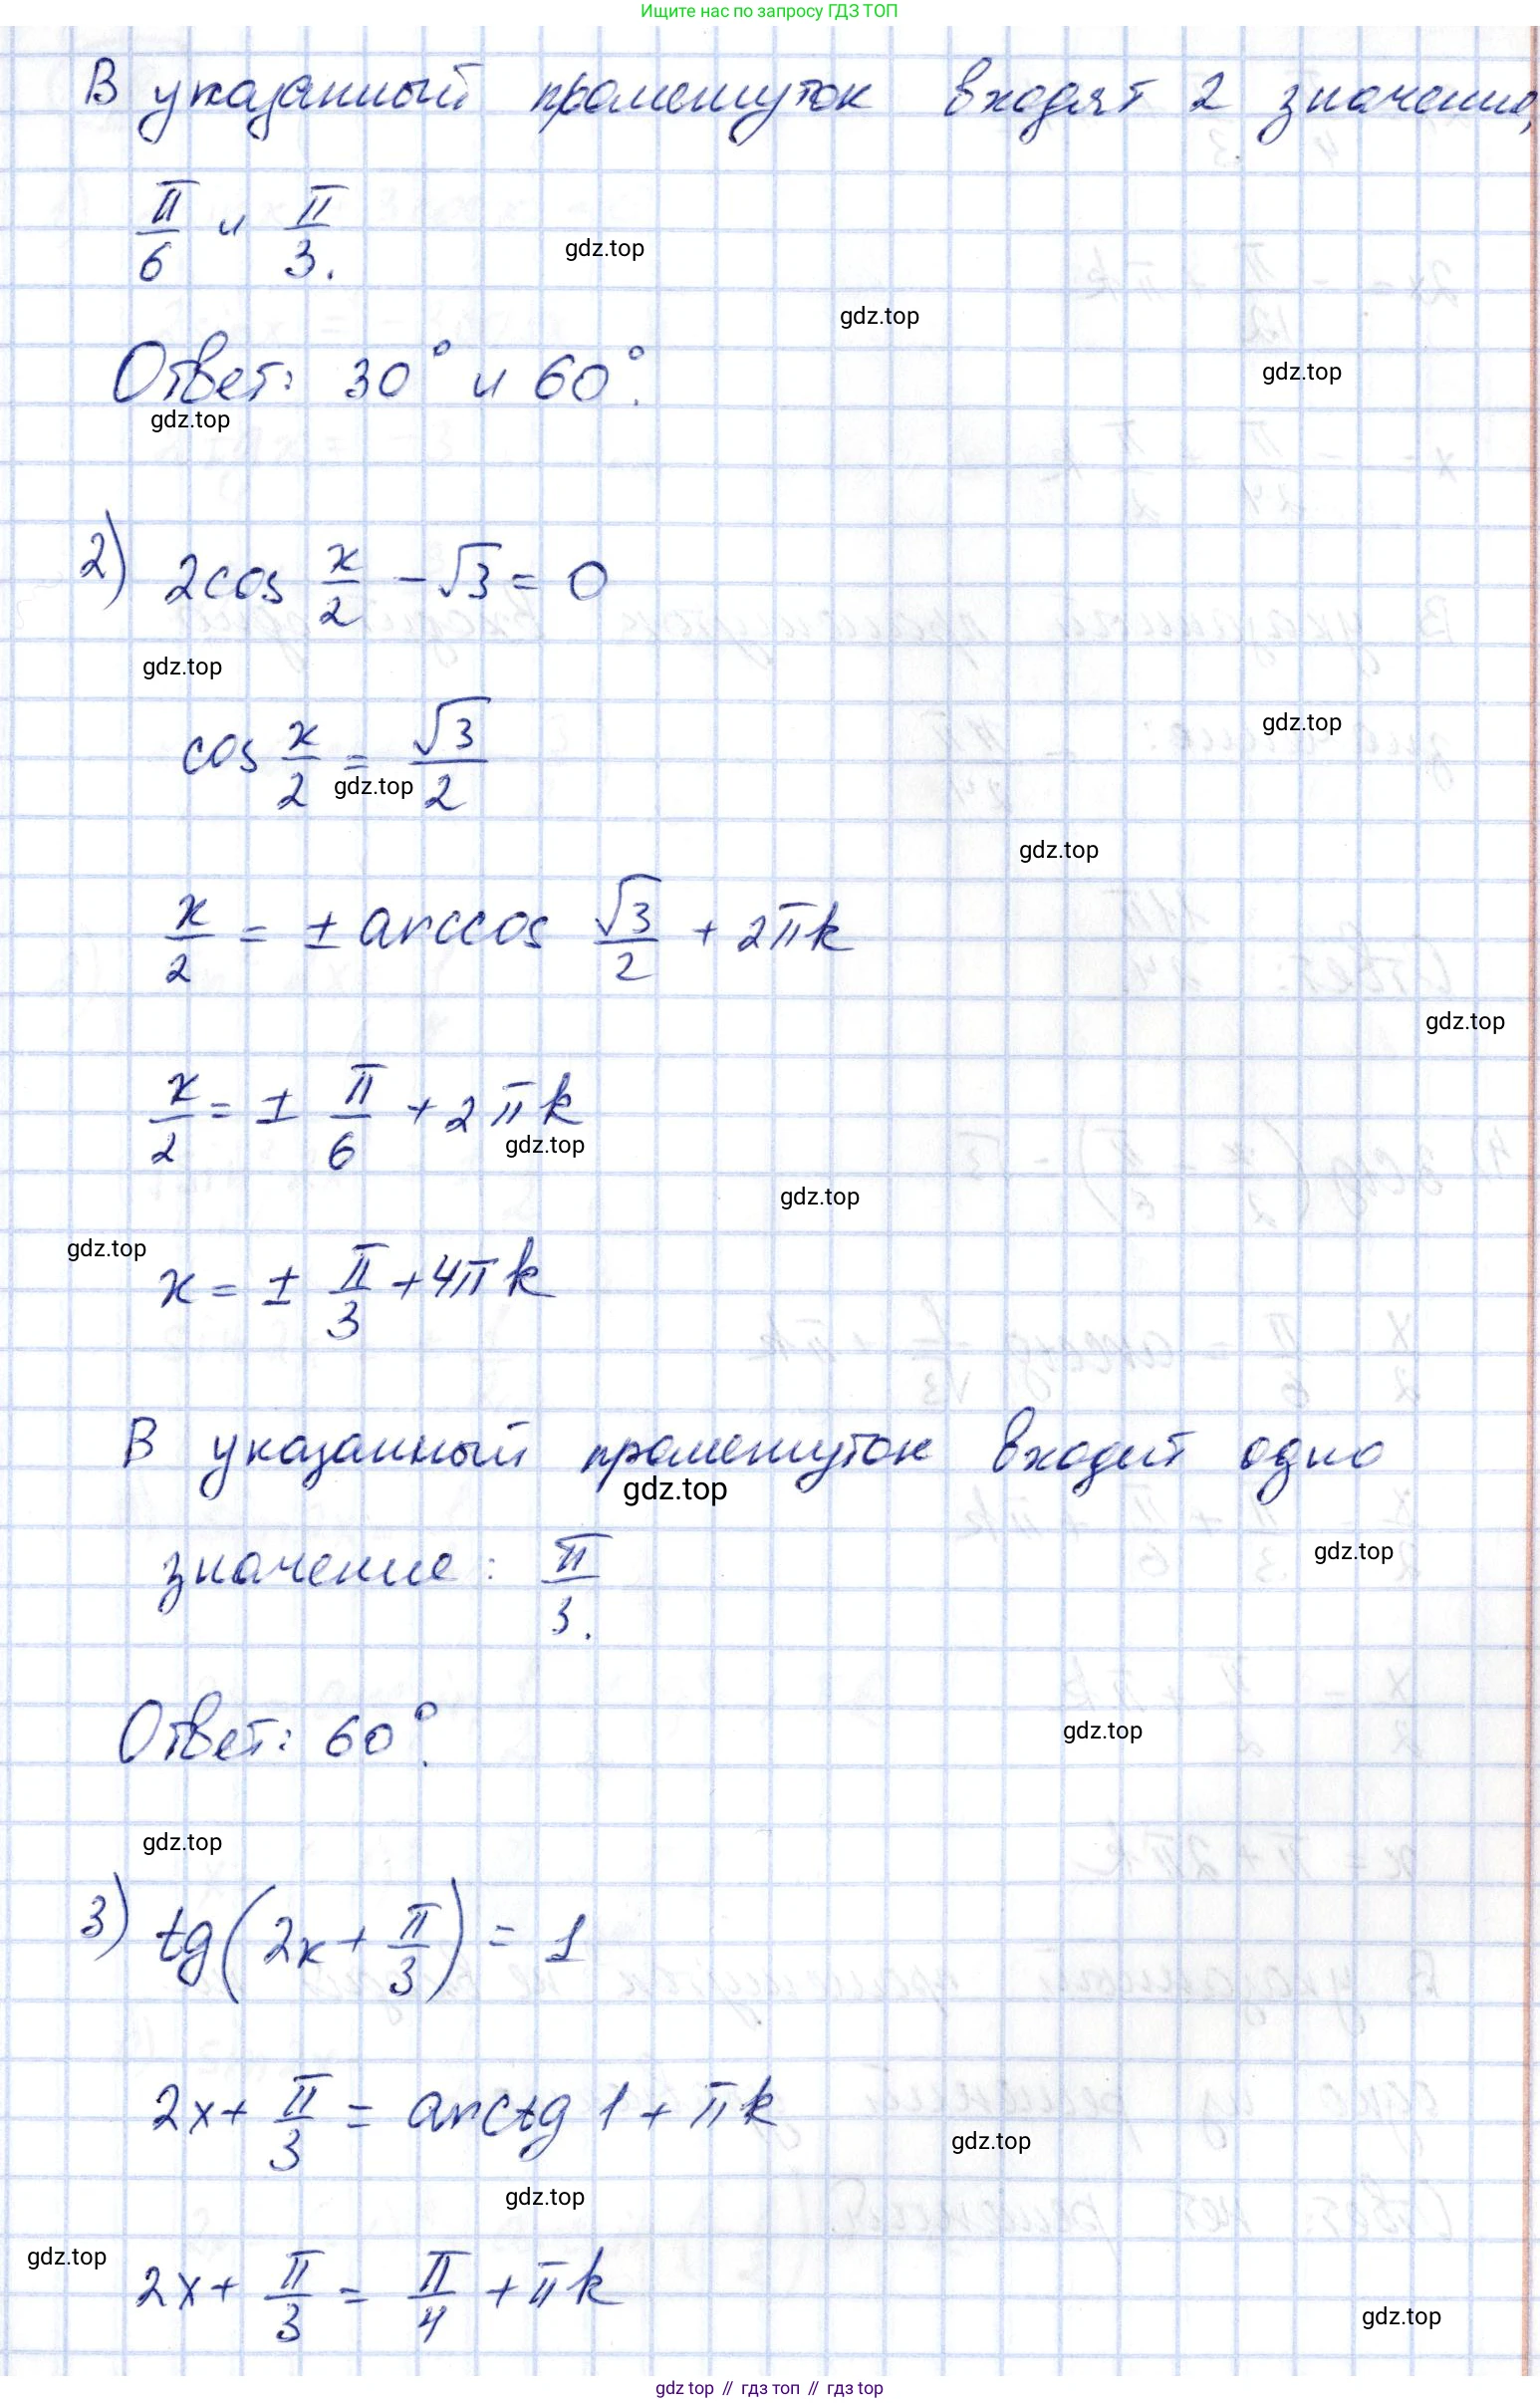 Ищите нас по запросу ГДЗ ТОП
В указанный промежуток входят 2 значения,
π/6 и π/3.
gdz.top
gdz.top
gdz.top
Ответ: 30° и 60°.
gdz.top
2) 2cos x/2 - √3 = 0
gdz.top
gdz.top
cos x/2 = √3/2
gdz.top
gdz.top
x/2 = ± arccos √3/2 + 2πk
gdz.top
x/2 = ± π/6 + 2πk
gdz.top
gdz.top
gdz.top
x = ± π/3 + 4πk
В указанный промежуток входит одно
gdz.top
значение: π/3.
gdz.top
Ответ: 60°.
gdz.top
gdz.top
3) tg(2x + π/3) = 1
2x + π/3 = arctg 1 + πk
gdz.top
gdz.top
gdz.top
2x + π/3 = π/4 + πk
gdz.top
gdz top // гдз топ // гдз top